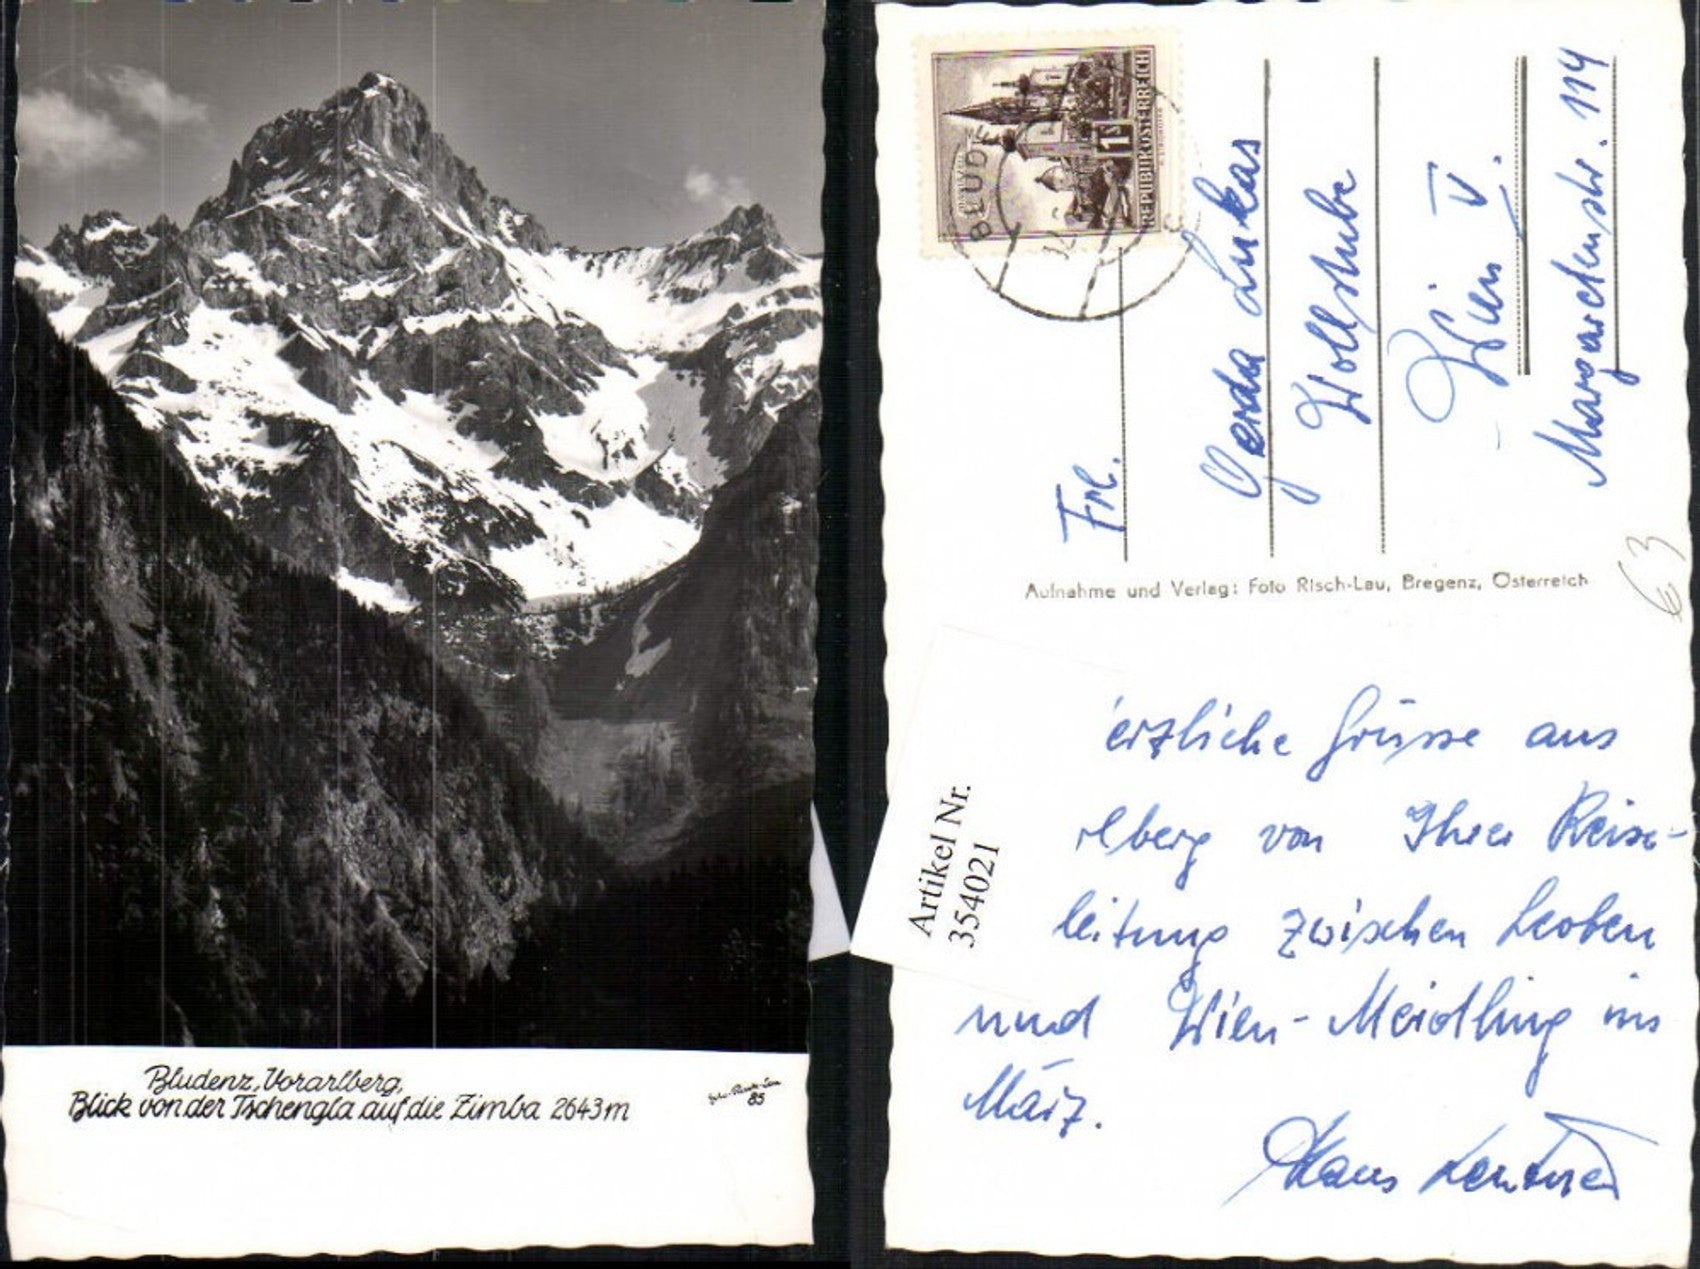 Bludenz, Vorarlberg,
Blick von der Tschengla auf die Zimba 2643m
85
BLUDE
REPUBLIK ÖSTERREICH
1
Frl.
Gerda Lukas
Wollstube
Wien V.
Margaretenstr. 114
Aufnahme und Verlag: Foto Risch-Lau, Bregenz, Österreich
€3
Artikel Nr.
354021
erzliche Grüsse aus
rlberg von Ihrer Reise-
leitung zwischen Leoben
und Wien-Meidling im
März.
Hans